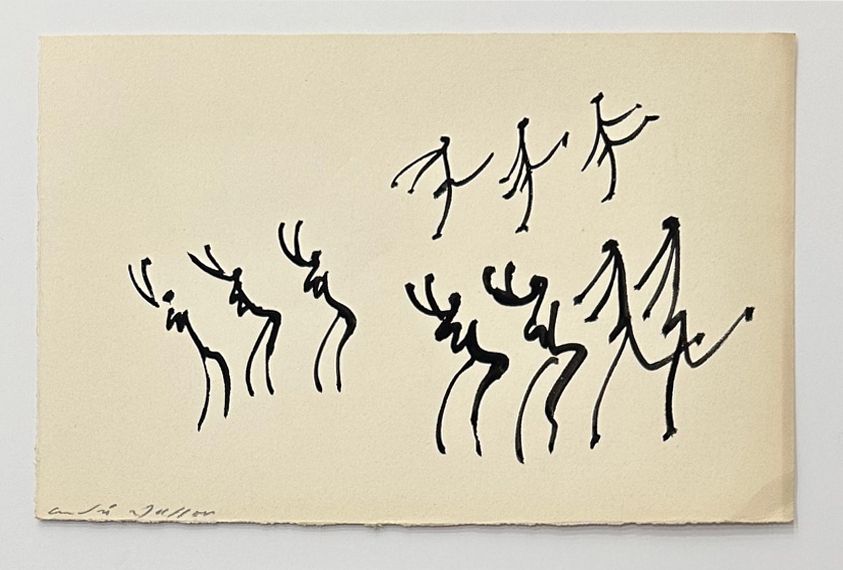 andré Masson